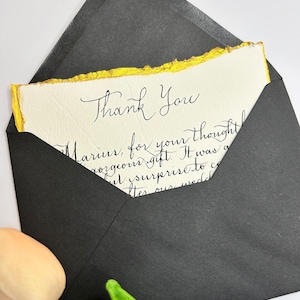 Thank You
Marius, for your thoughtf
gorgeous gift. It was a
surprise to
our wedd